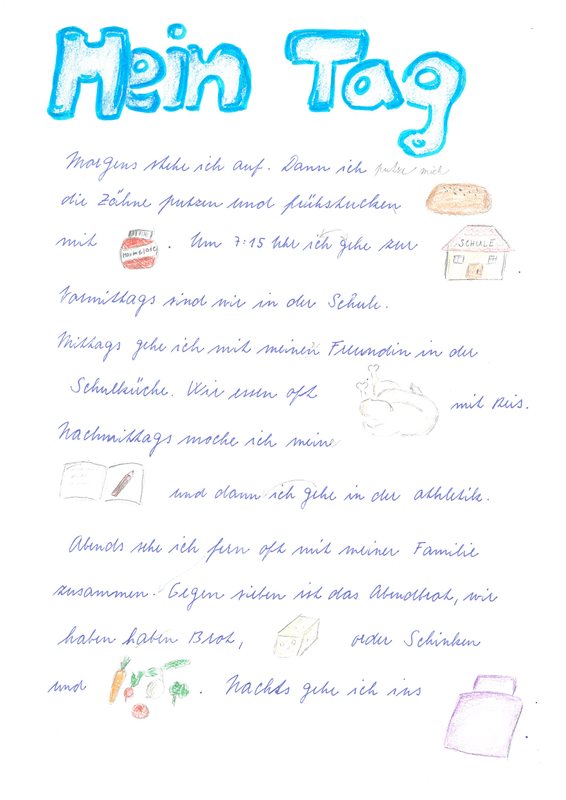 Mein Tag
Morgens stehe ich auf. Dann ich putze mich
die Zähne putzen und frühstucken
mit MARMELADE. Um 7:15 Uhr ich gehe zur SCHULE.
Vormittags sind wir in der Schule.
Mittags gehe ich mit meinen Freundin in der
Schulküche. Wir essen oft mit Reis.
Nachmittags mache ich meine
und dann ich gehe in der athletik.
Abends sehe ich fern oft mit meiner Familie
zusammen. Gegen sieben ist das Abendbrot, wir
haben haben Brot, oder Schinken
und . Nachts gehe ich ins .